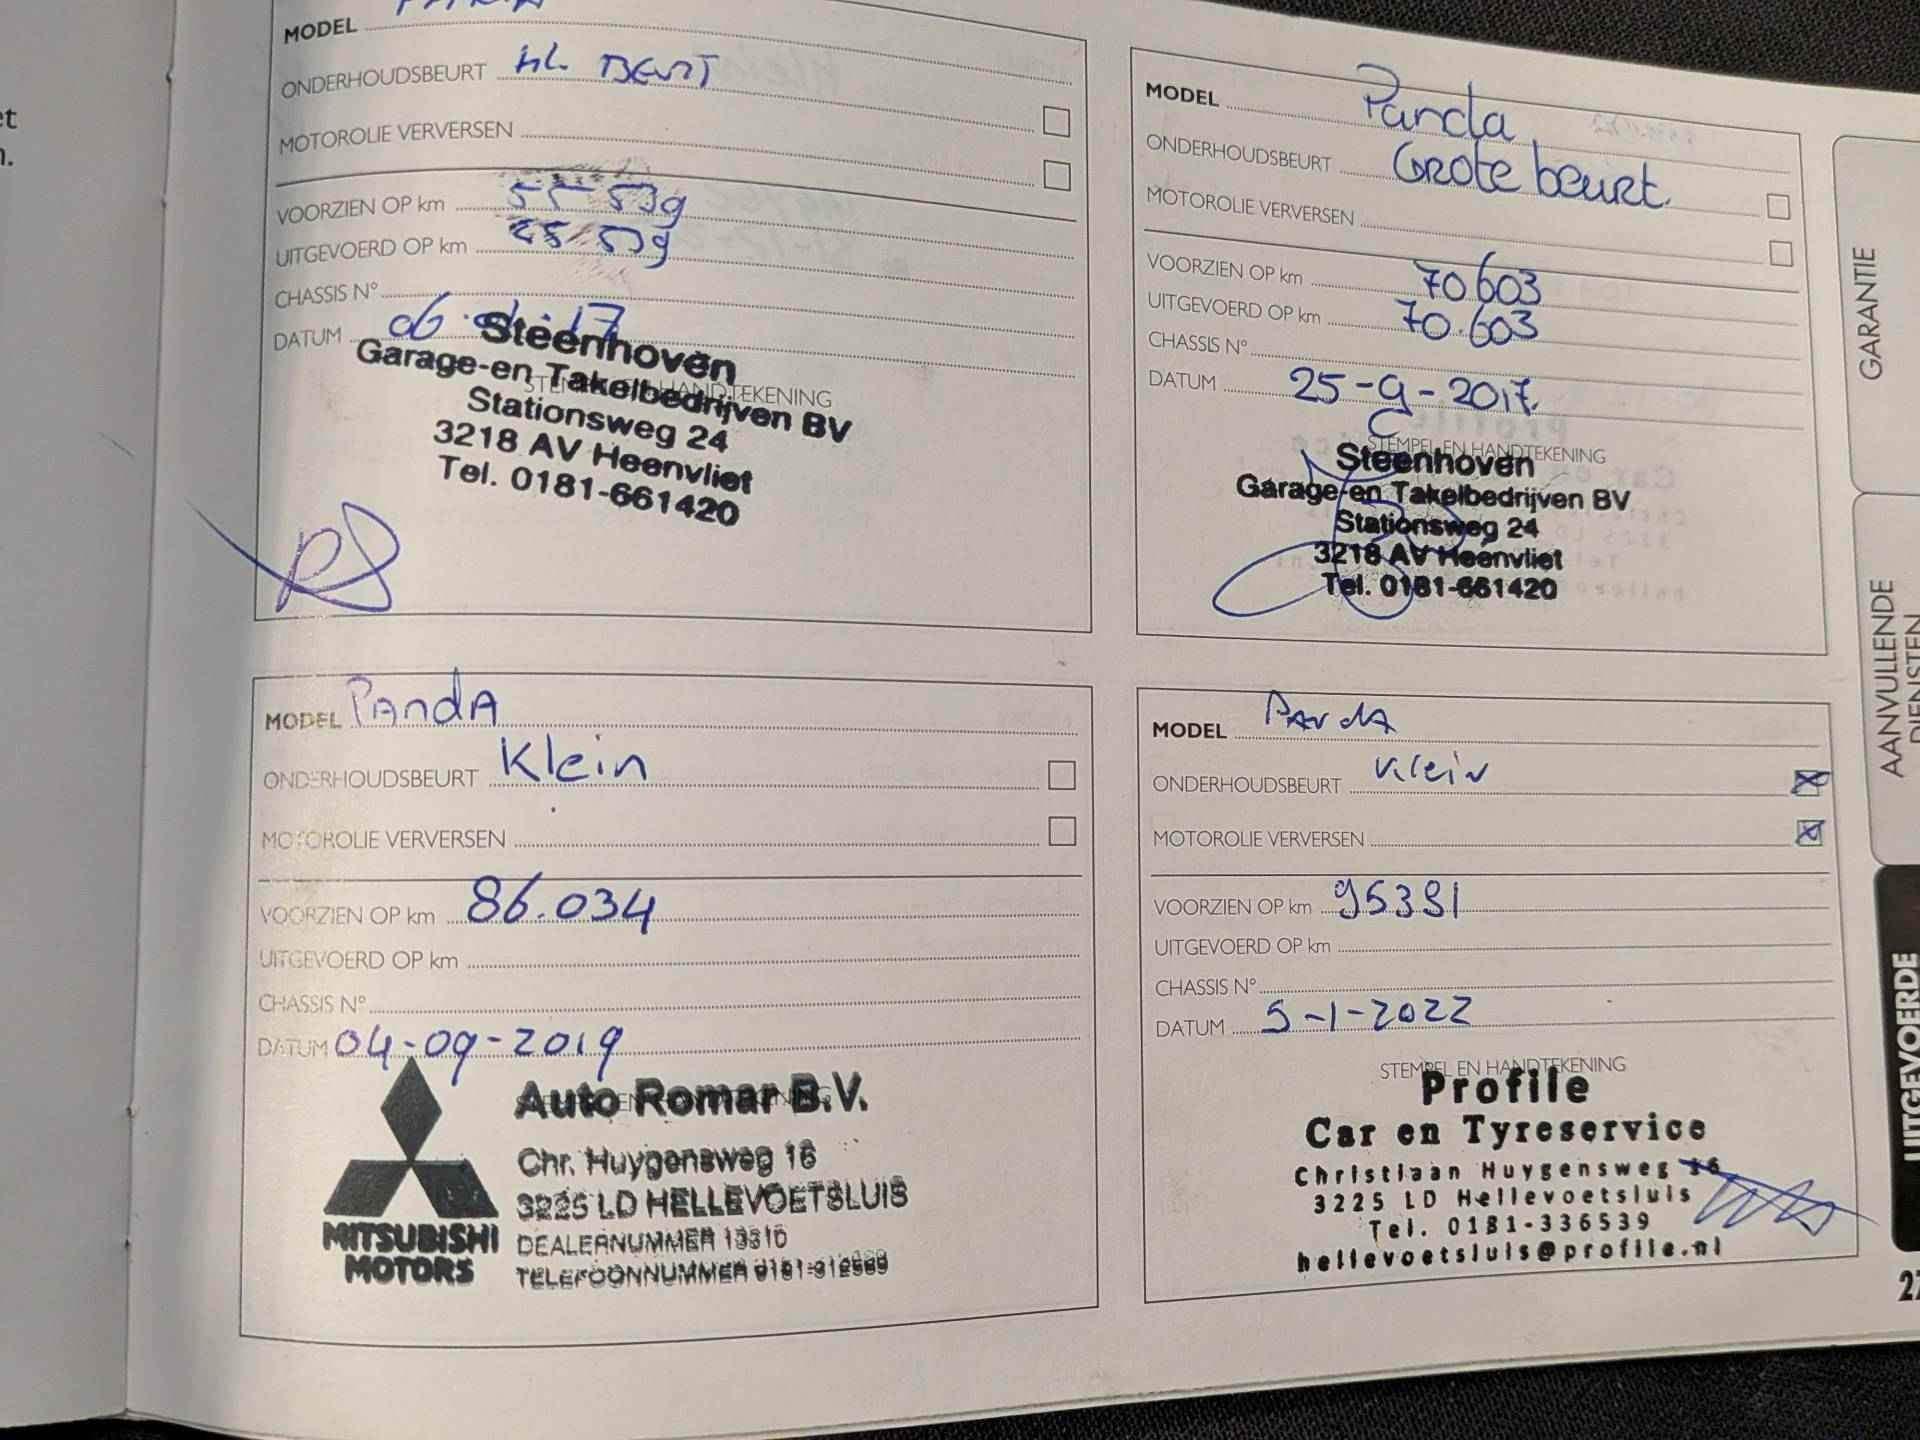 et
n.
MODEL
ONDERHOUDSBEURT KL BEURT
MOTOROLIE VERVERSEN
VOORZIEN OP km 55 539
UITGEVOERD OP km 539
CHASSIS N°
DATUM 06 17
STEMPEL EN HANDTEKENING
Steenhoven
Garage-en Takelbedrijven BV
Stationsweg 24
3218 AV Heenvliet
Tel. 0181-661420
MODEL Panda
ONDERHOUDSBEURT Grote beurt.
MOTOROLIE VERVERSEN
VOORZIEN OP km 70603
UITGEVOERD OP km 70.603
CHASSIS N°
DATUM 25-9-2017.
STEMPEL EN HANDTEKENING
Steenhoven
Garage-en Takelbedrijven BV
Stationsweg 24
3218 AV Heenvliet
Tel. 0181-661420
MODEL PandA
ONDERHOUDSBEURT Klein
MOTOROLIE VERVERSEN
VOORZIEN OP km 86.034
UITGEVOERD OP km
CHASSIS N°
DATUM 04-09-2019
Auto Romar B.V.
Chr. Huygensweg 16
3225 LD HELLEVOETSLUIS
DEALERNUMMER 13310
TELEFOONNUMMER
MITSUBISHI
MOTORS
MODEL PandA
ONDERHOUDSBEURT Klein
MOTOROLIE VERVERSEN
VOORZIEN OP km 95381
UITGEVOERD OP km
CHASSIS N°
DATUM 5-1-2022
STEMPEL EN HANDTEKENING
Profile
Car en Tyreservice
Christiaan Huygensweg 16
3225 LD Hellevoetsluis
Tel. 0181-336539
hellevoetsluis@profile.nl
GARANTIE
AANVULLENDE
DIENSTEN
UITGEVOERDE
27